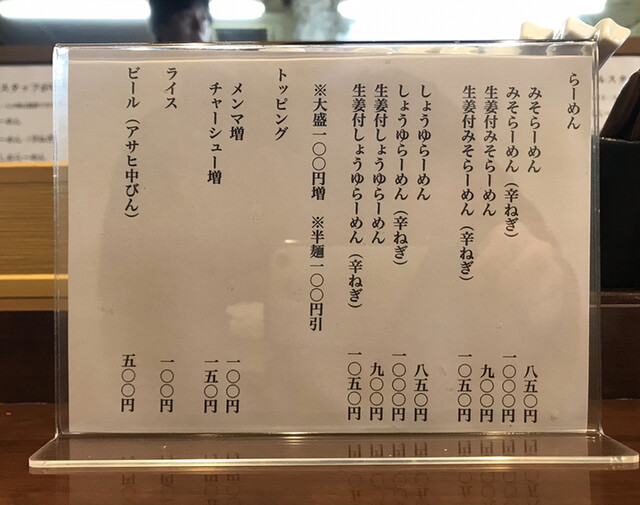 らーめん
みそらーめん 八五〇円
みそらーめん（辛ねぎ） 一〇〇〇円
生姜付みそらーめん 九〇〇円
生姜付みそらーめん（辛ねぎ） 一〇五〇円
しょうゆらーめん 八五〇円
しょうゆらーめん（辛ねぎ） 一〇〇〇円
生姜付しょうゆらーめん 九〇〇円
生姜付しょうゆらーめん（辛ねぎ） 一〇五〇円
※大盛一〇〇円増 ※半麺一〇〇円引
トッピング
メンマ増 一〇〇円
チャーシュー増 一五〇円
ライス 一〇〇円
ビール（アサヒ中びん） 五〇〇円